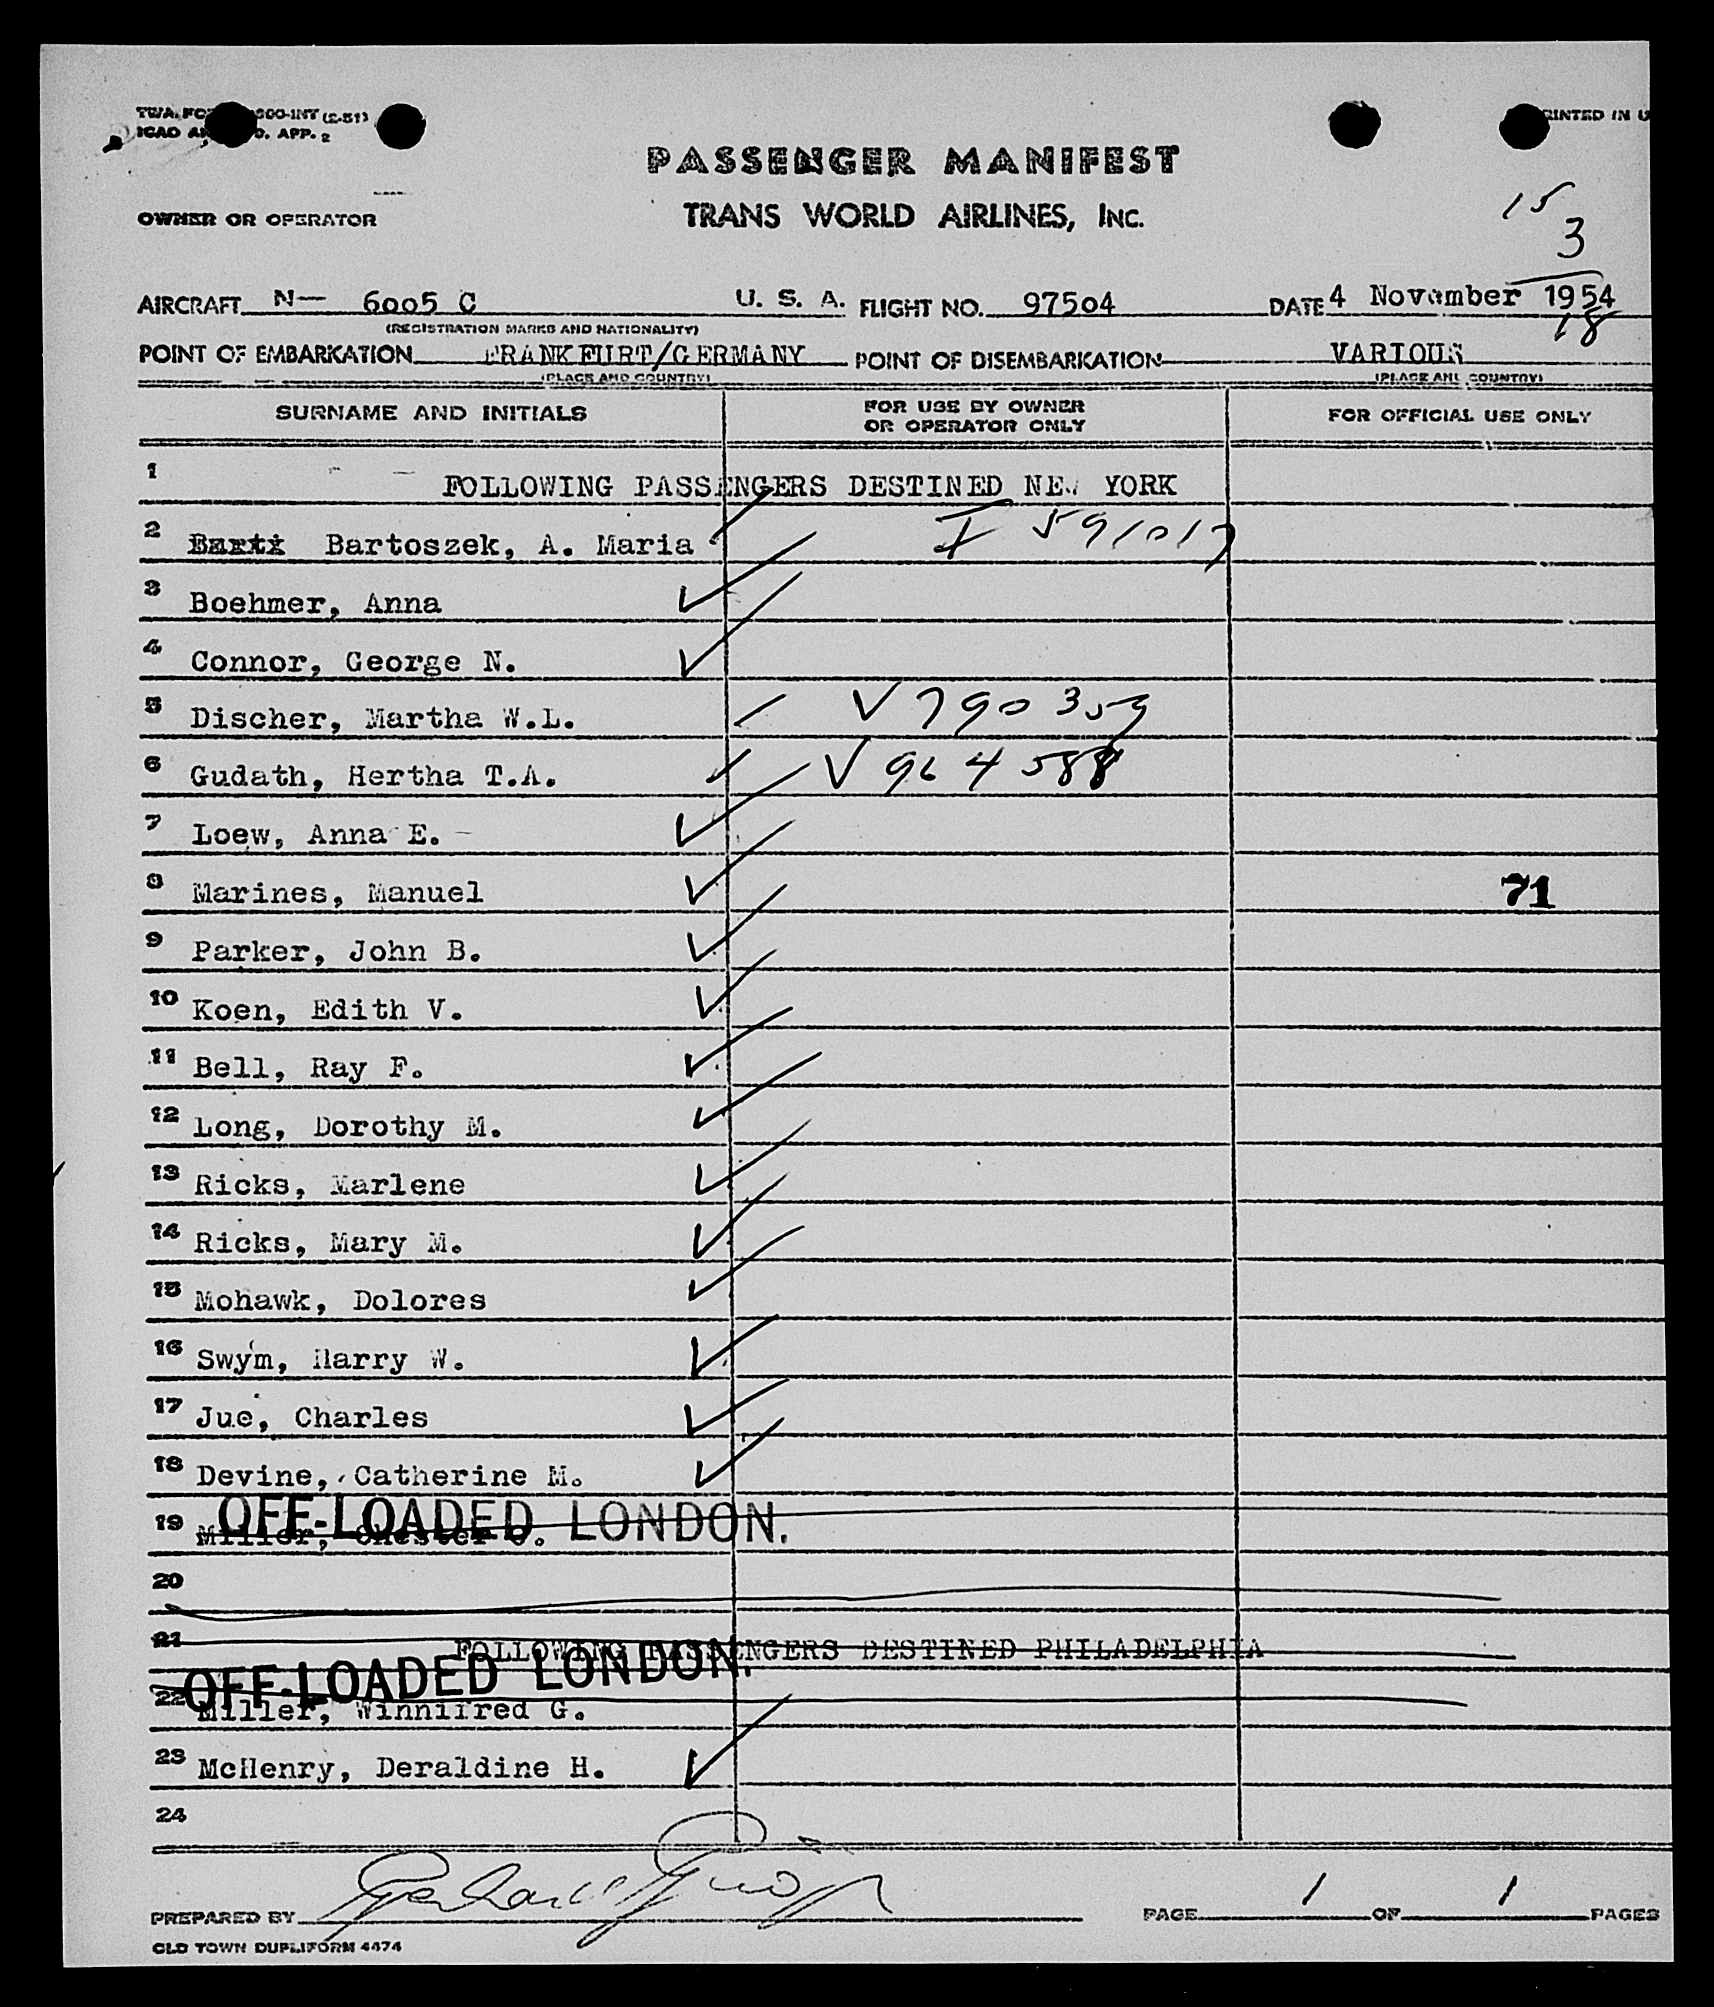 TWA. FO 300-INT (2-51)
ICAO AN O. APP. 2
RINTED IN U
PASSENGER MANIFEST
OWNER OR OPERATOR TRANS WORLD AIRLINES, INC.
15
3
18
AIRCRAFT N— 6005 C U. S. A. FLIGHT NO. 97504 DATE 4 November 1954
(REGISTRATION MARKS AND NATIONALITY)
POINT OF EMBARKATION FRANKFURT/GERMANY POINT OF DISEMBARKATION VARIOUS
(PLACE AND COUNTRY) (PLACE AND COUNTRY)
SURNAME AND INITIALS FOR USE BY OWNER OR OPERATOR ONLY FOR OFFICIAL USE ONLY
1 FOLLOWING PASSENGERS DESTINED NEW YORK
2 Barti Bartoszek, A. Maria I 591017
3 Boehmer, Anna
4 Connor, George N.
5 Discher, Martha W.L. V 790359
6 Gudath, Hertha T.A. V 964588
7 Loew, Anna E.
8 Marines, Manuel 71
9 Parker, John B.
10 Koen, Edith V.
11 Bell, Ray F.
12 Long, Dorothy M.
13 Ricks, Marlene
14 Ricks, Mary M.
15 Mohawk, Dolores
16 Swym, Harry W.
17 Jue, Charles
18 Devine, Catherine M.
OFF-LOADED LONDON.
19 Miller, Chester C.
20
21 FOLLOWING PASSENGERS DESTINED PHILADELPHIA
OFF-LOADED LONDON.
22 Miller, Winnifred G.
23 McHenry, Deraldine H.
24
PREPARED BY PAGE 1 OF 1 PAGES
OLD TOWN DUPLIFORM 4474